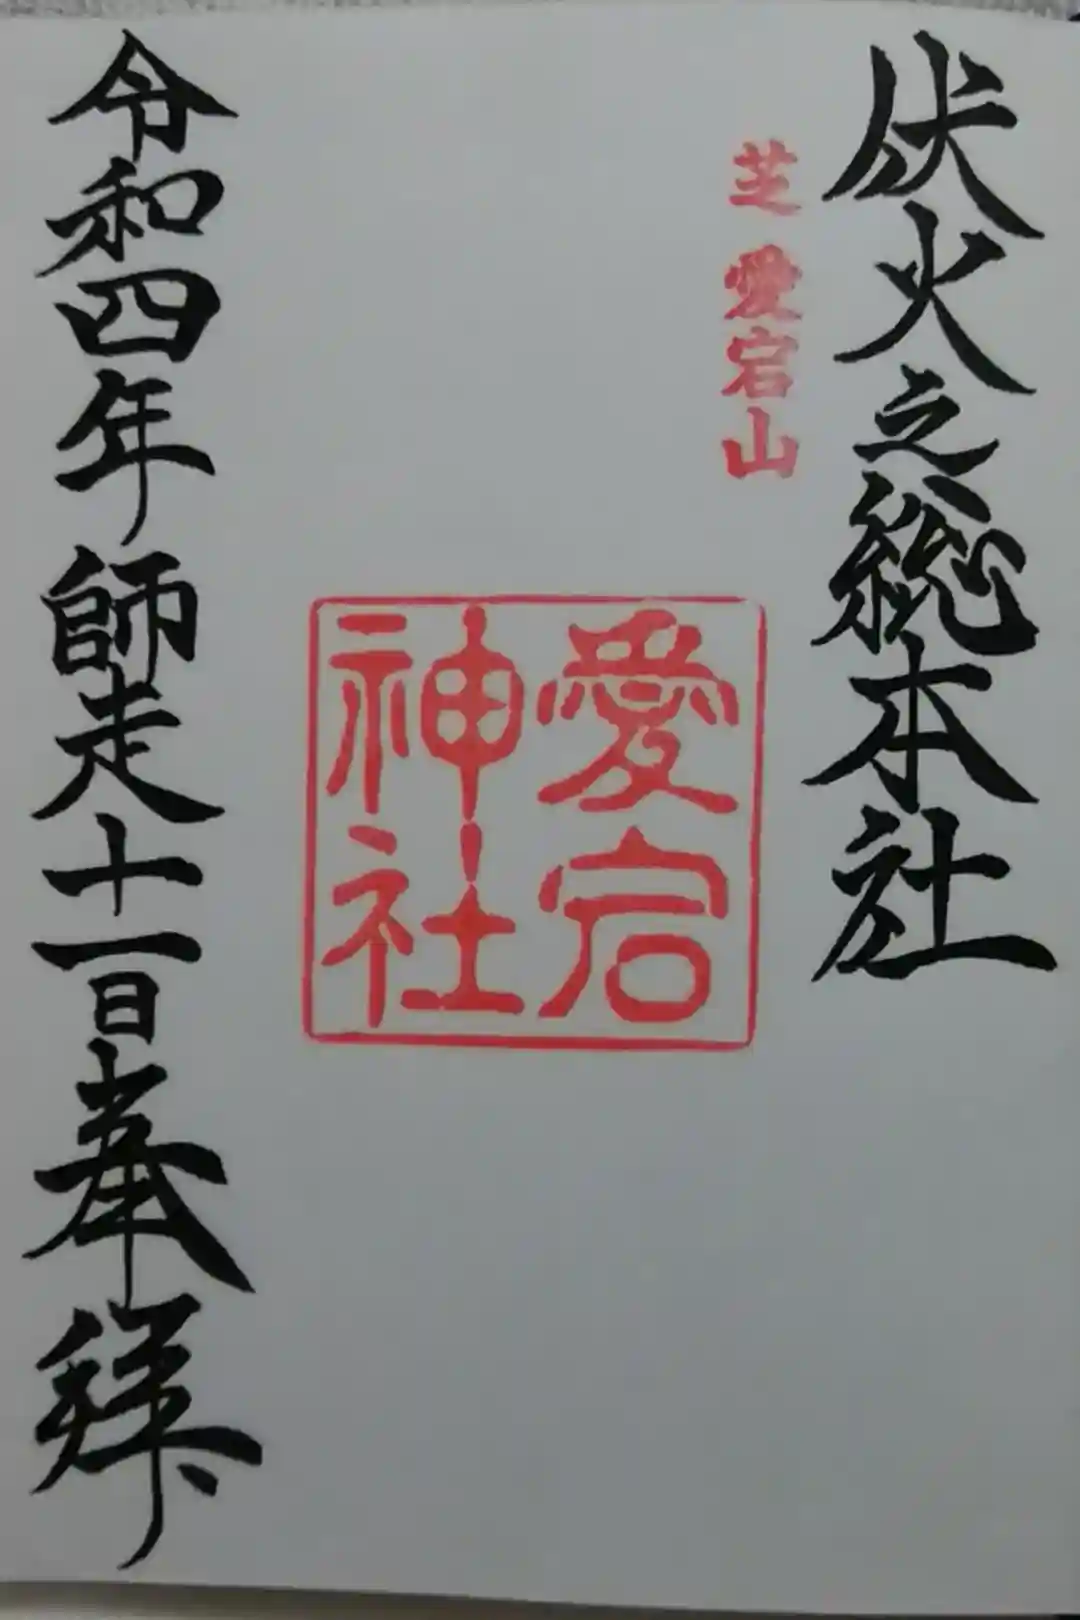 伏火之総本社
芝 愛宕山
愛宕
神社
令和四年師走十一日奉拝